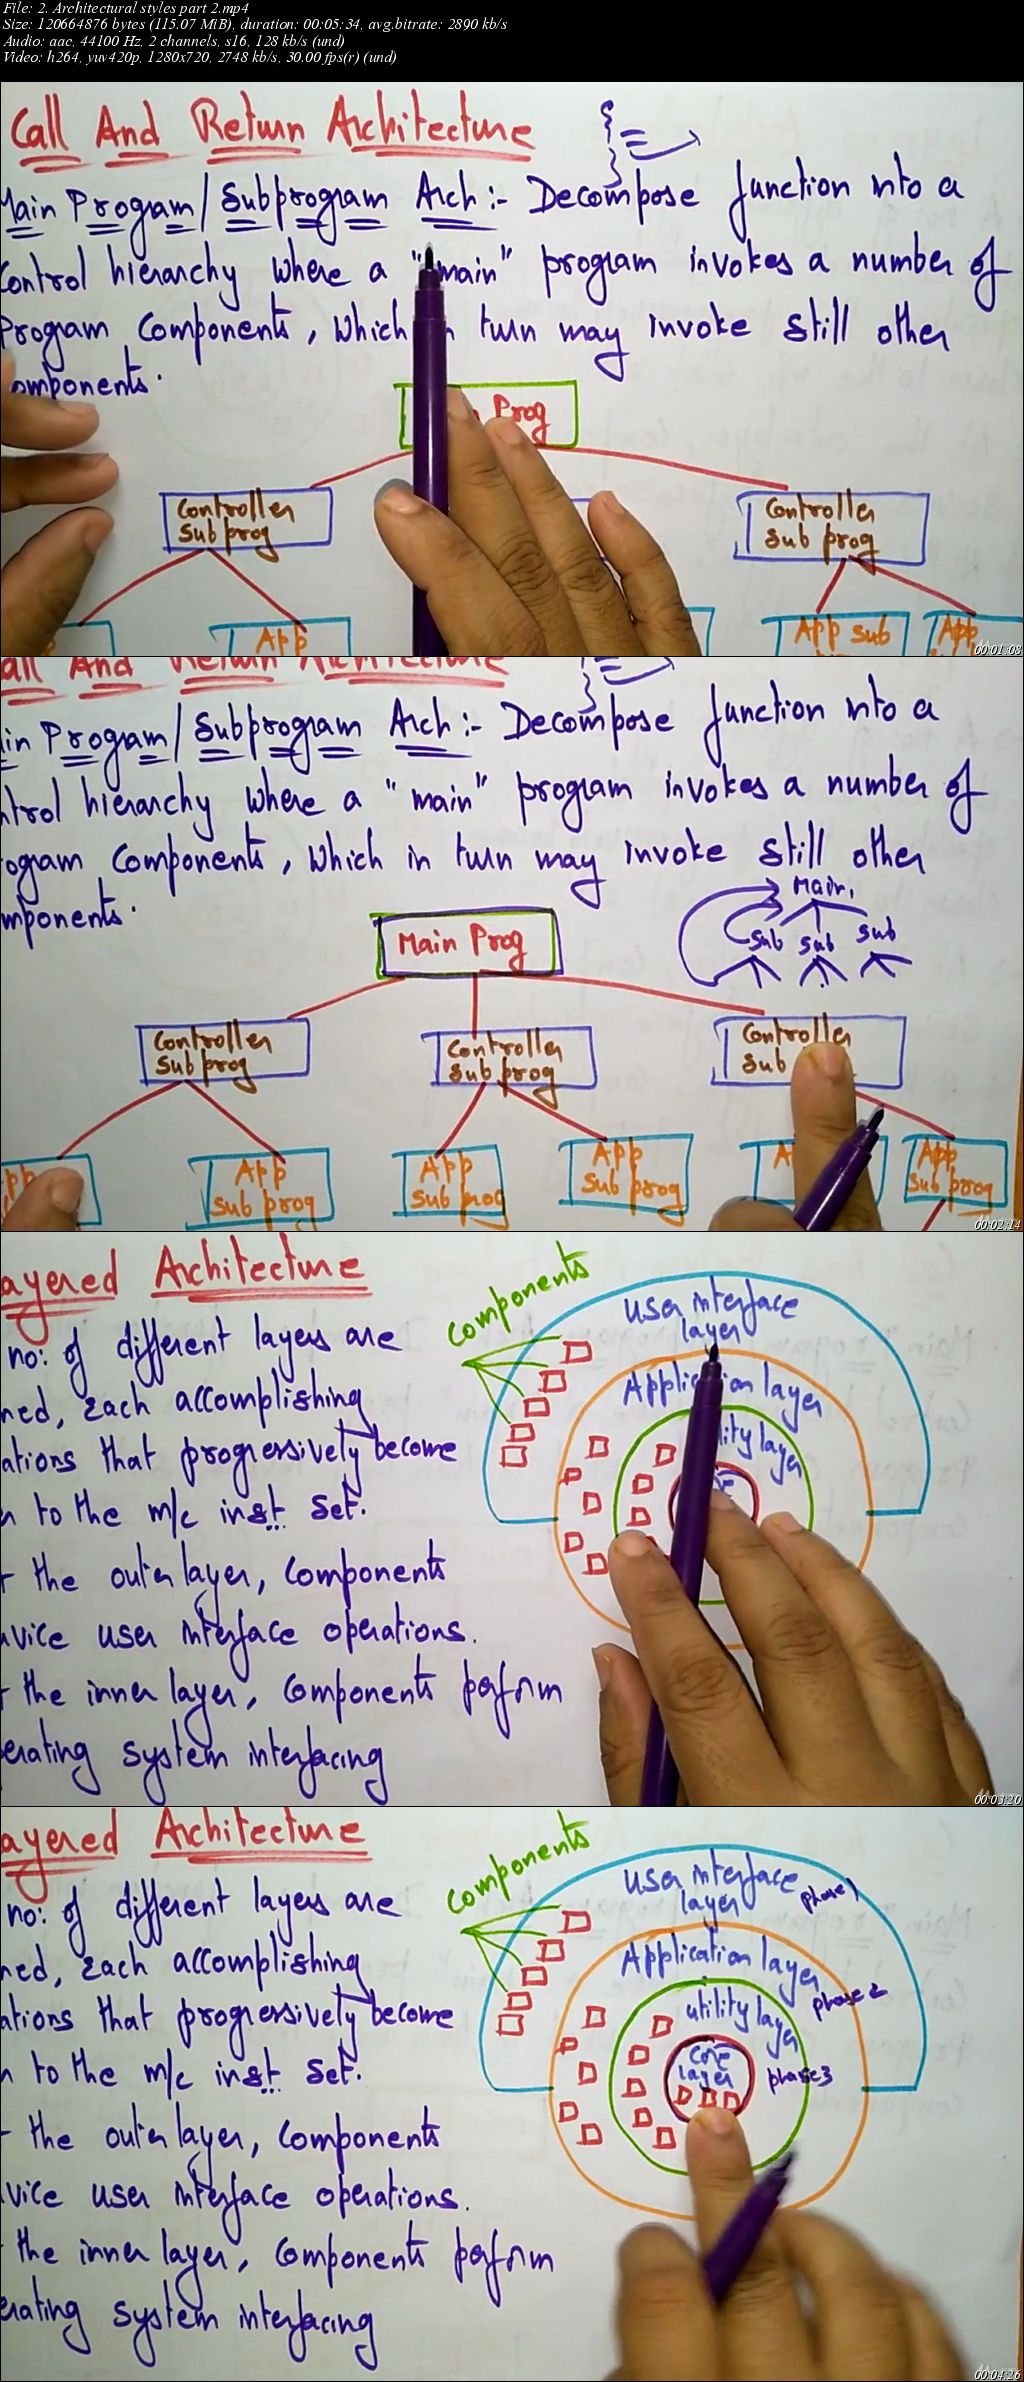 File: 2. Architectural styles part 2.mp4
Size: 120664876 bytes (115.07 MiB), duration: 00:05:34, avg.bitrate: 2890 kb/s
Audio: aac, 44100 Hz, 2 channels, s16, 128 kb/s (und)
Video: h264, yuv420p, 1280x720, 2748 kb/s, 30.00 fps(r) (und)
Call And Return Architecture
Main Program/Subprogram Arch :- Decompose function into a
Control hierarchy where a "main" program invokes a number of
Program Components, Which turn may invoke still other
omponents.
Prog
Controller
Sub prog
Controller
Sub prog
App
App sub
App
00:01:08
all And Return Architecture
in Program/Subprogram Arch :- Decompose function into a
ntrol hierarchy where a "main" program invokes a number of
ogram Components, Which in turn may invoke still other
mponents.
Main
Sub Sub Sub
Main Prog
Controller
Sub prog
Controller
Sub prog
Controller
Sub
pp
App
Sub prog
App
Sub prog
App
Sub prog
A
App
Sub prog
00:02:14
ayered Architecture
Components
User interface
layer
no: of different layers are
ned, Each accomplishing
Application layer
ations that progressively become
lity layer
n to the m/c inst set.
r the outer layer, Components
rvice user interface operations.
r the inner layer, Components perform
erating system interfacing
00:03:20
ayered Architecture
Components
User interface
layer
phase1
no: of different layers are
ned, Each accomplishing
Application layer
phase2
ations that progressively become
utility layer
n to the m/c inst set.
Core
layer
phase3
r the outer layer, Components
vice user interface operations.
the inner layer, Components perform
erating system interfacing
00:04:26